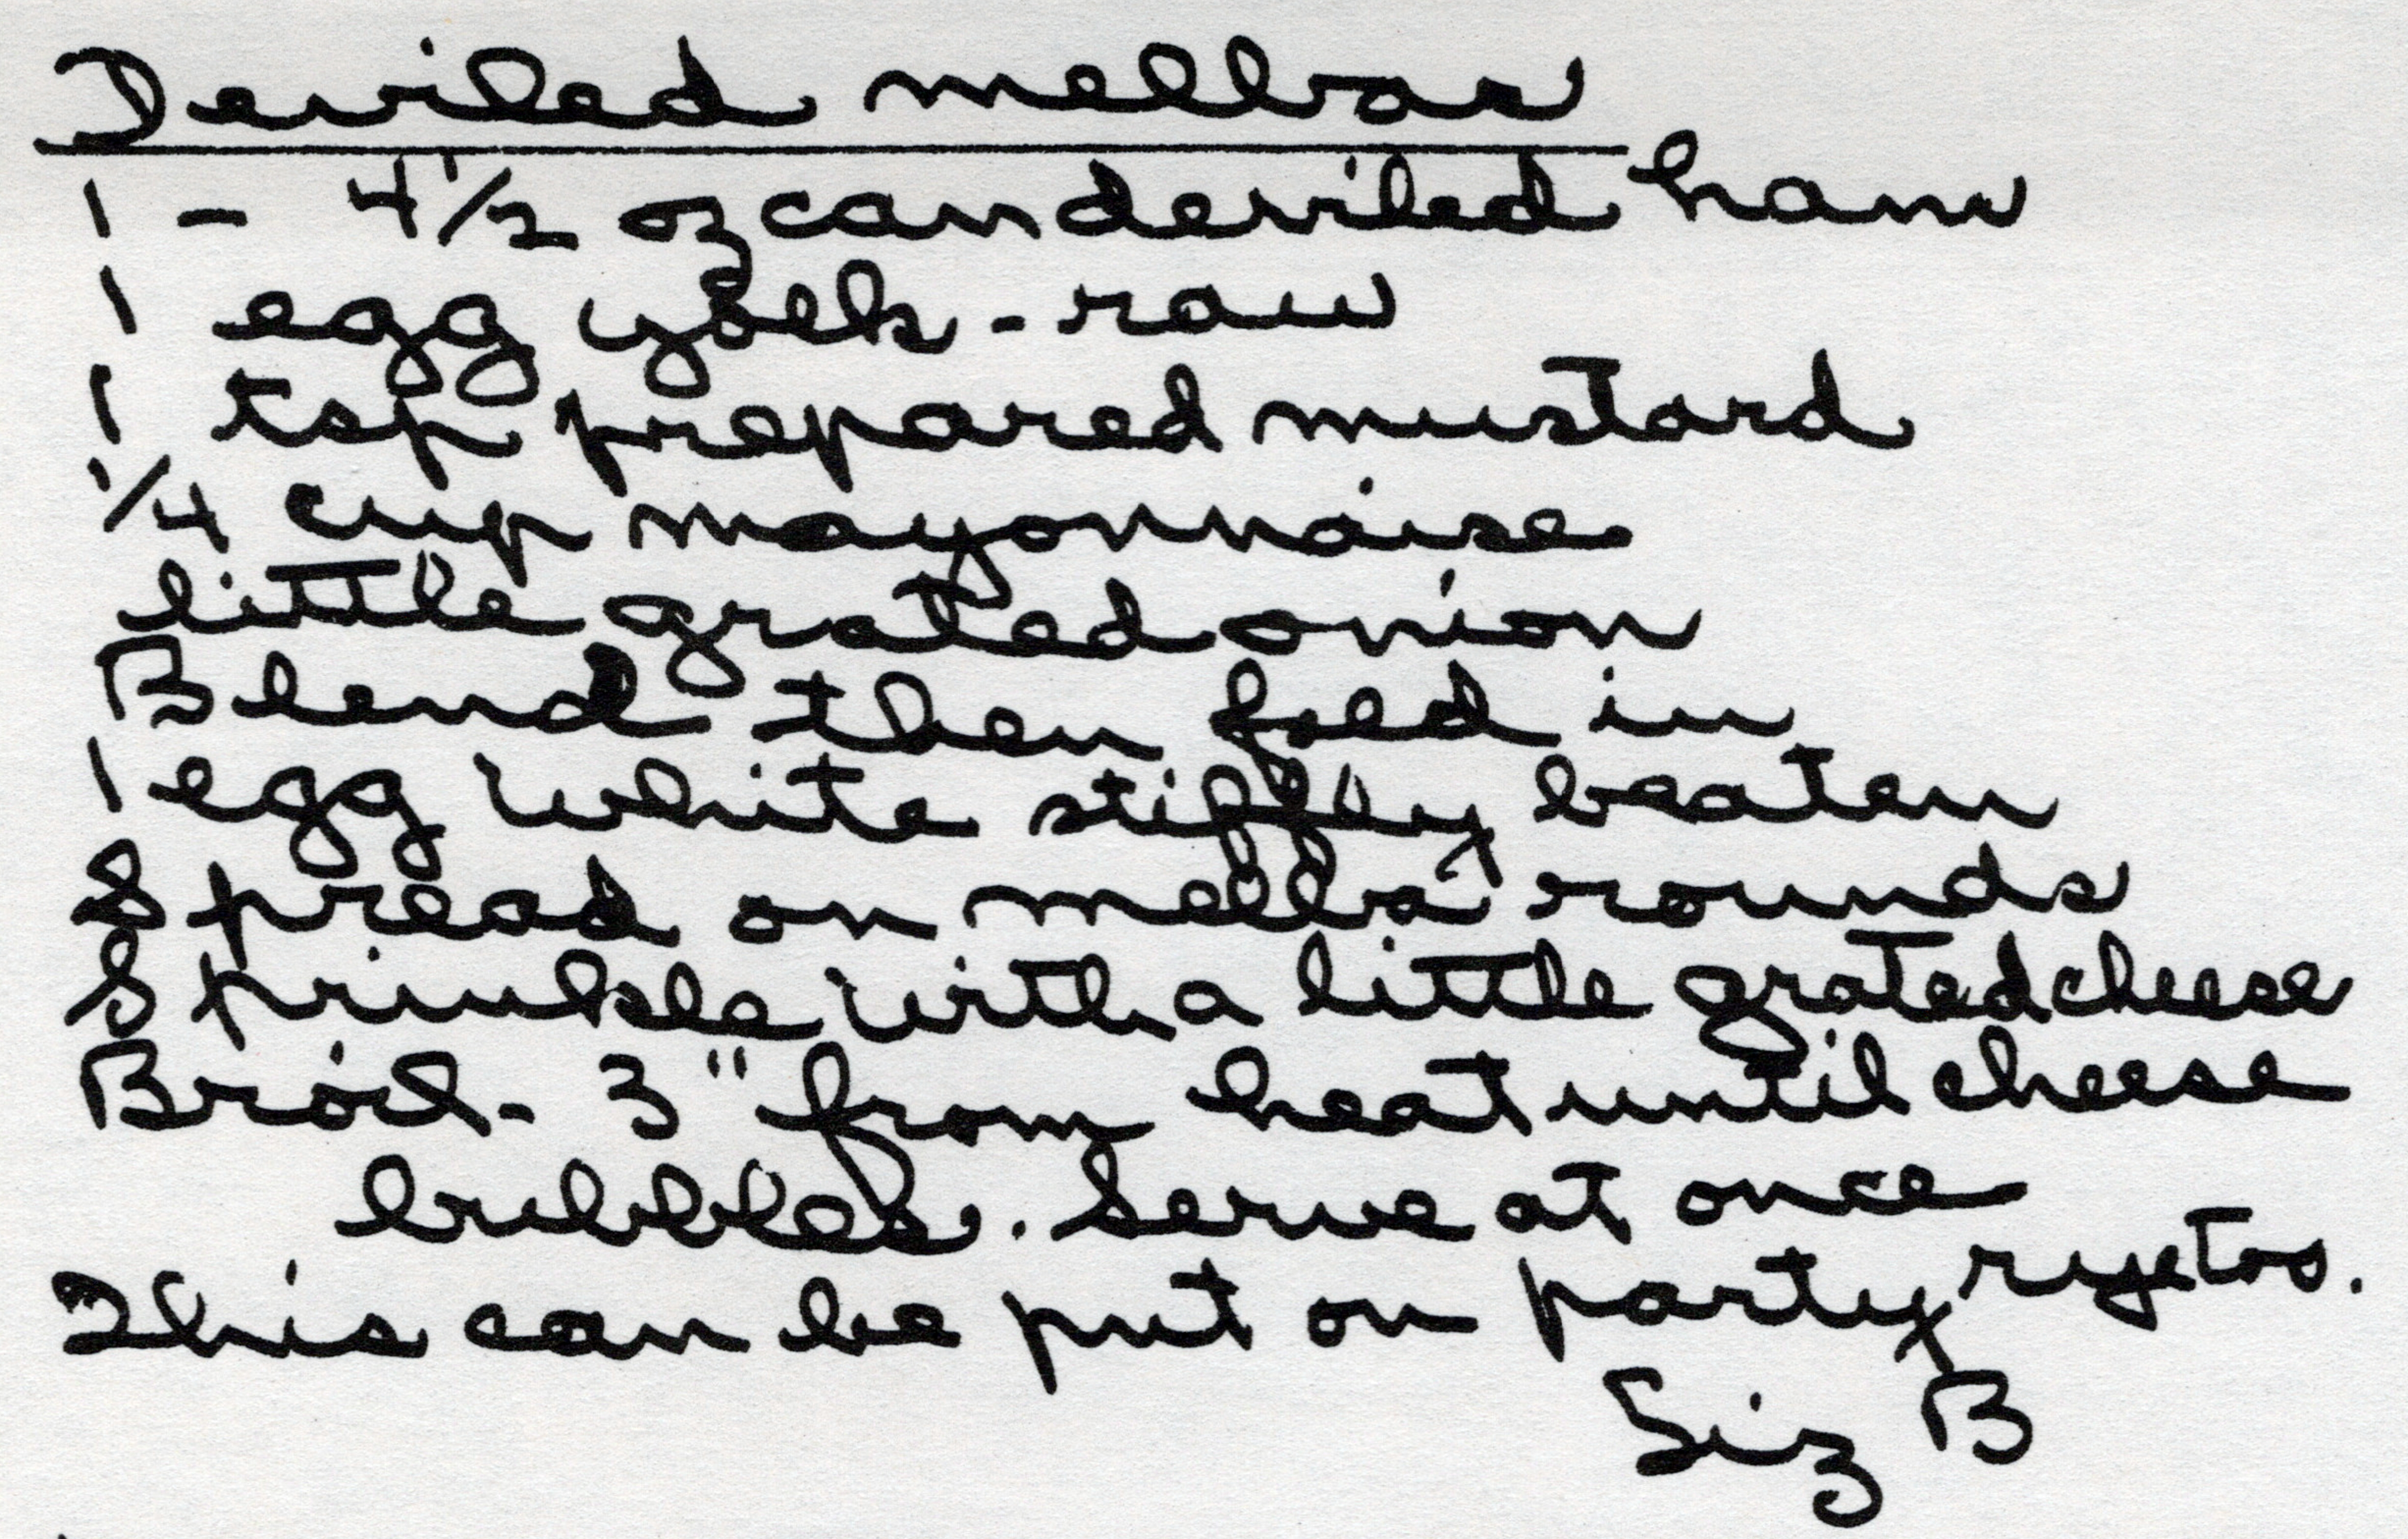 Deviled melbas
1 - 4 1/2 oz can deviled ham
1 egg yolk - raw
1 tsp prepared mustard
1/4 cup mayonnaise
little grated onion
Blend then fold in
1 egg white stiffly beaten
Spread on melba rounds
Sprinkle with a little grated cheese
Broil - 3" from heat until cheese
bubbles. Serve at once
This can be put on party rye too.
Liz B